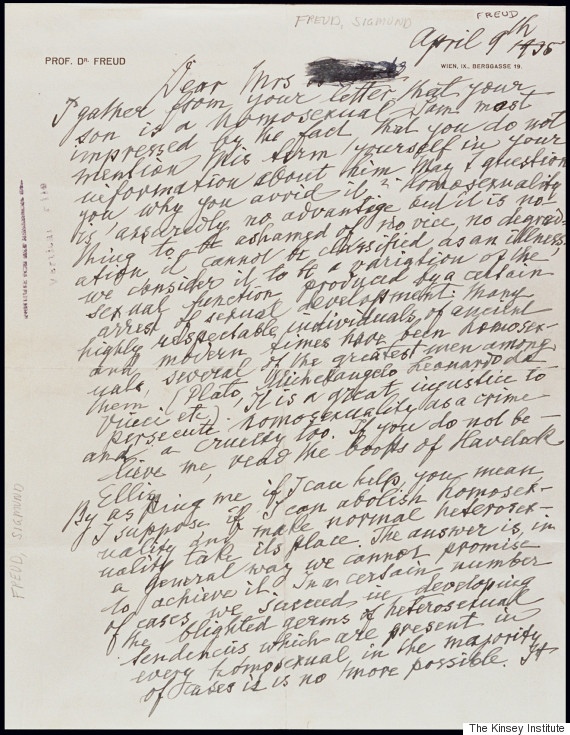 FREUD, SIGMUND
FREUD
April 9th 1935
PROF. DR. FREUD
WIEN, IX., BERGGASSE 19.
Dear Mrs
I gather from your letter that your
son is a homosexual. I am most
impressed by the fact, that you do not
mention this term yourself in your
information about him. May I question
you why you avoid it? Homosexuality
is assuredly no advantage but it is no-
thing to be ashamed of, no vice, no degrad-
ation, it cannot be classified as an illness;
we consider it to be a variation of the
sexual function produced by a certain
arrest of sexual development. Many
highly respectable individuals of ancient
and modern times have been homosex-
uals, several of the greatest men among
them (Plato, Michelangelo, Leonardo da
Vinci etc). It is a great injustice to
persecute homosexuality as a crime
and a cruelty too. If you do not be-
lieve me, read the books of Havelock
Ellis.
By asking me if I can help, you mean
I suppose, if I can abolish homosex-
uality and make normal heterosex-
uality take its place. The answer is, in
a general way we cannot promise
to achieve it. In a certain number
of cases we succeed in developing
the blighted germs of heterosexual
tendencies which are present in
every homosexual, in the majority
of cases it is no more possible. It
FREUD, SIGMUND
The Kinsey Institute